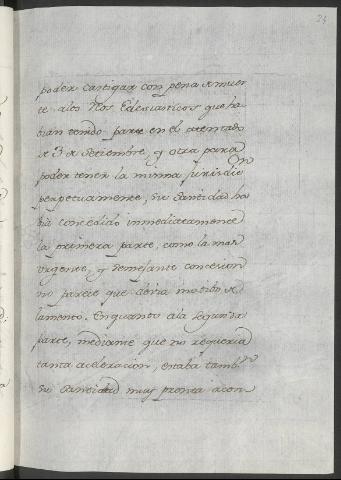 24
poder castigar con pena de muer
te alos Ros Eclesiasticos que ha
bian tenido parte en el atentado
de 3 de Setiembre, y otra para
poder tener la misma jurisdic.on
perpetuamente, su Santidad ha
bia concedido immediatamente
la primera parte, como la mas
urgente, y semejante concesion
no parece que dexa motibo de
lamento. En quanto ala segunda
parte, mediante que no requeria
tanta aceleracion, estaba tamb.n
su Santidad muy pronta a con